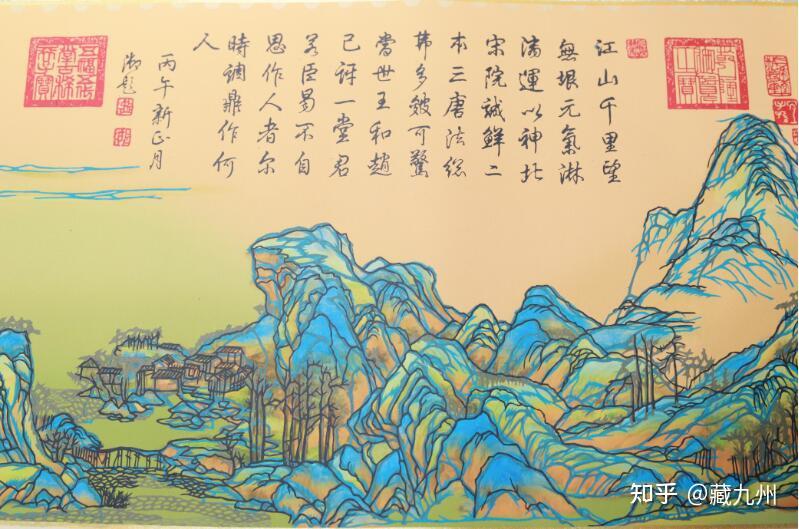 江山千里望
無垠元氣淋
漓運以神北
宋院誠鮮二
本三唐法総
弗多皴可驚
當世王和趙
已訝一堂君
若臣曷不自
思作人者尔
時調鼎作何
人
丙午新正月
御題
知乎 @藏九州